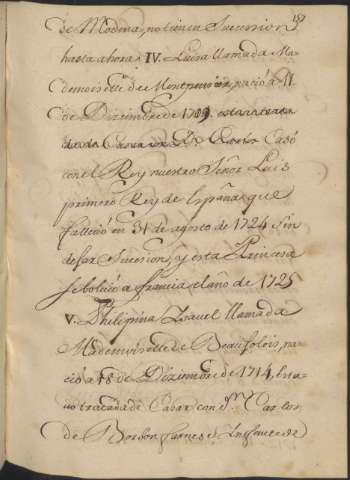 de Modena, no tienen Sucession
157
hasta ahora. IV. Luisa llamada Ma-
demoiselle de Montpensier, nació a 11
de Diziembre de 1709.
Casó
con el Rey nuestro Señor Luis
primero Rey de España que
falleció en 31 de agosto de 1724 sin
dejar Sucession, y esta Princesa
se bolvió a francia el año de 1725
V. Philipina Isavel llamada
Mademoiselle de Beaujolois, na-
ció a 18 de Diziembre de 1714, estu-
vo tratada de Casar con Dn. Carlos
de Borbon farnes e Infante de